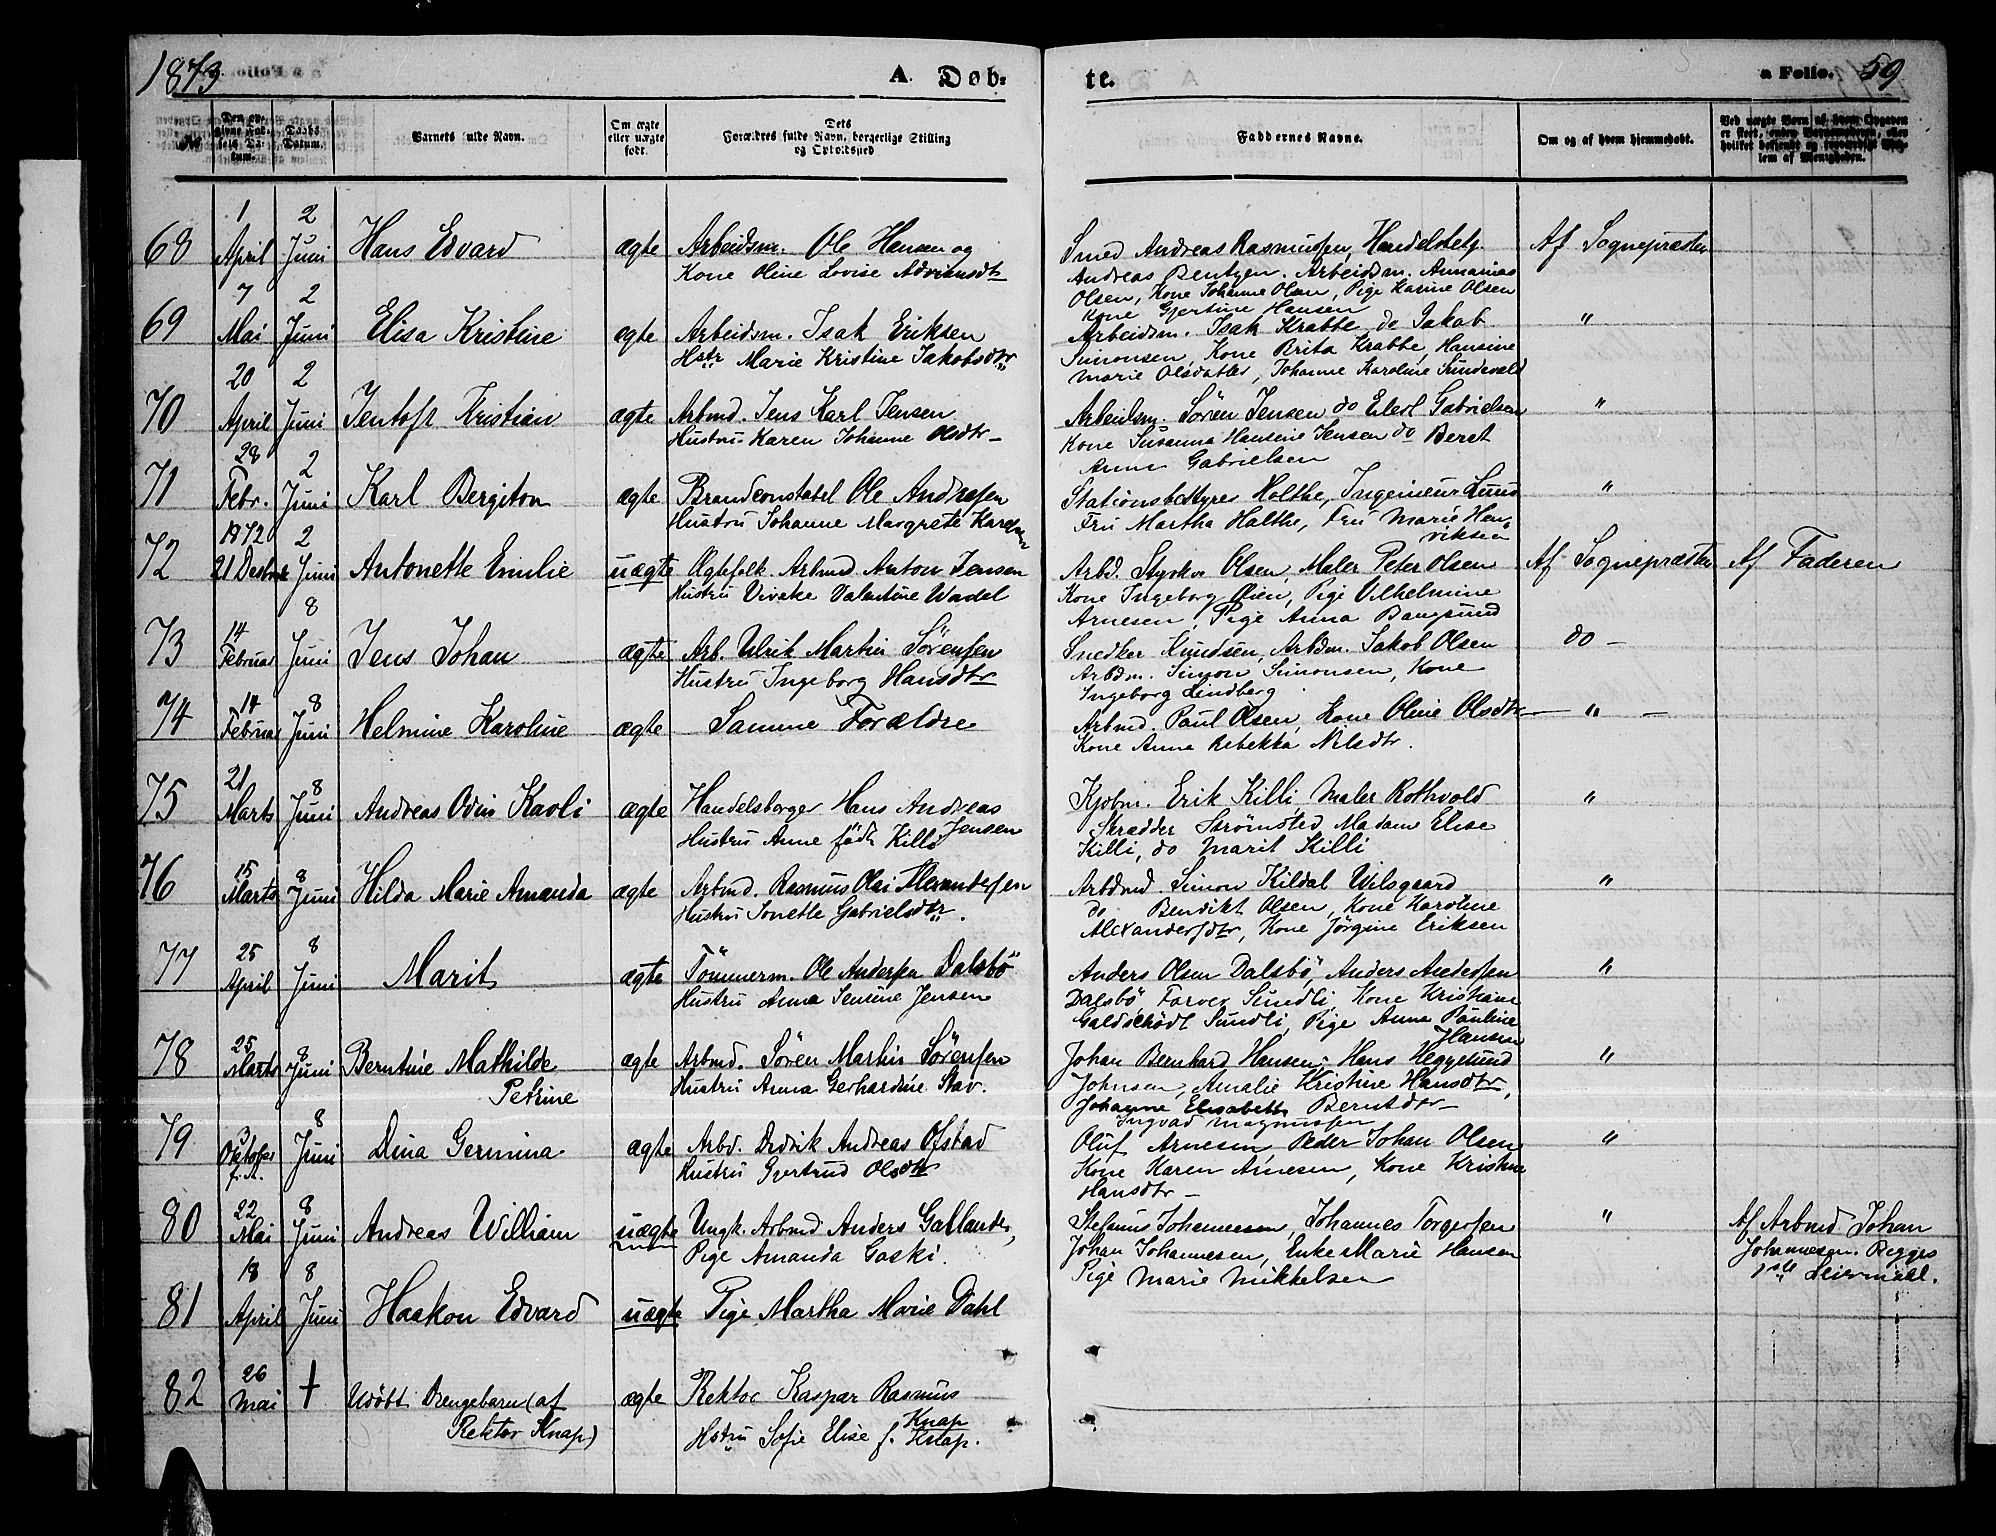 1873
A. Døb-
te.
a Folio. 59
No
Den opgivne Fødsels Datum.
Daabs Datum.
Barnets fulde Navn.
Om ægte eller uægte født.
Dets Forældres fulde Navn, borgerlige Stilling og Opholdssted
Faddernes Navne.
Om og af hvem hjemmedøbt.
Ved uægte Børn af hvem Opgaven er skeet, enten Barnemoderen, eller hvilket bekjendt og troværdigt Medlem af Menigheden.
68 1 April 2 Juni Hans Edvard ægte Arbeidsm. Ole Hansen og
Kone Oline Lovise Adriansdtr
Smed Andreas Rasmussen, Handelsbetj.
Andreas Bentzen. Arbeidsm. Annanias
Olsen, Kone Johanne Olsen, Pige Karine Olsen
Kone Gjertine Hansen
Af Sognepræsten
69 7 Mai 2 Juni Elisa Kristine ægte Arbeidsm. Isak Eriksen
Hstr Marie Kristine Jakobsdtr
Arbeidsm. Isak Krabbe, do Jakob
Simonsen, Kone Brita Krabbe, Hansine
Marie Olsdatter, Johanne Karoline Sundevald
"
70 20 April 2 Juni Jentoft Kristian ægte Arbmd. Jens Karl Jensen
Hustru Karen Johanne Olsdtr –
Arbeidsm. Sören Jensen do Elert Gabrielsen
Kone Susanna Hansine Jensen do Beret
Anna Gabrielsen
"
71 28 Febr. 2 Juni Karl Bergiton ægte Brandconstabel Ole Andresen
Hustru Johanne Margrete Karlsen
Stationsbestyrer Holthe, Ingenieur Lund
Fru Martha Holthe, Fru Marie Hen-
riksen
"
72 1872 21 Decbr 2 Juni Antonette Emilie uægte Ægtefolk. Arbmd Anton Jensen
Hustru Viveke Valentine Wadel
Arbd. Olsen, Maler Peter Olsen
Kone Ingeborg Olsen, Pige Vilhelmine
Arnesen, Pige Anna Bangsund
Af Sognepræsten Af Faderen
73 14 Februar 8 Juni Jens Johan ægte Arb. Ulrik Martin Sörensen
Hustru Ingeborg Hansdtr
Snedker Knudsen, Arbdm. Jakob Olsen
Arbdm. Simon Simonsen, Kone
Ingeborg Lindberg.
do –
74 14 Februar 8 Juni Helmine Karoline ægte Samme Forældre
Arbmd. Paul Olsen, Kone Oline Olsdtr
Kone Anna Rebekka Nilsdtr.
– " –
75 21 Marts 8 Juni Andreas Odin Kaoli ægte Handelsborger Hans Andreas
Jensen
Hustru Anne födt Killi
Kjøbm. Erik Killi, Maler Rothvold
Skrædder Strömsted Madam Elise
Killi, do Marit Killi
"
76 15 Marts 8 Juni Hilda Marie Amanda ægte Arbmd. Rasmus Olai Alexandersen
Hustru Jonette Gabrielsdtr.
Arbdmd. Simon Kildal Wilsgaard
do Bendikt Olsen, Kone Karoline
Alexandersdtr, Kone Jörgine Eriksen
"
77 25 April 8 Juni Marit ægte Tömmerm. Ole Andersen Dalsbö
Hustru Anna Jensine Jensen
Anders Olsen Dalsbö, Anders Andersen
Dalsbö Farver Sundli, Kone Kristiane
Galdschödt Sundli, Pige Anna Pauline
Hansen
"
78 25 Marts 8 Juni Berntine Mathilde
Petrine
ægte Arbmd. Sören Martin Sörensen
Hustru Anna Gerhardine Stav.
Johan Bernhard Hansen, Hans Heggelund
Johnsen, Amalie Kristine Hansdtr,
Johanne Elisabeth Berntdtr –
Ingvad Magnussen
"
79 3 Oktober f.A. 8 Juni Dina Germina ægte Arbd. Didrik Andreas Ofstad
Hustru Gjertrud Olsdtr
Oluf Arnesen, Peder Johan Olsen
Kone Karen Arnesen, Kone Kristine
Hansdtr –
"
80 22 Mai 8 Juni Andreas William uægte Ungk. Arbmd Anders Gallander,
Pige Amanda Gaski.
Stefanus Johannesen, Johannes Torgersen
Johan Johannesen, Enke Marie Hansen
Pige Marie Mikkelsen
"
Af Arbmd Johan
Johannesen. Begges
1ste Leiermaal.
81 18 April 8 Juni Haakon Edvard uægte Pige Martha Marie Dahl
82 26 Mai + Udöbt Drengebarn (af
Rektor Knap)
ægte Rektor Kaspar Rasmus
Knap
Hstru Sofie Elise f. Knap.